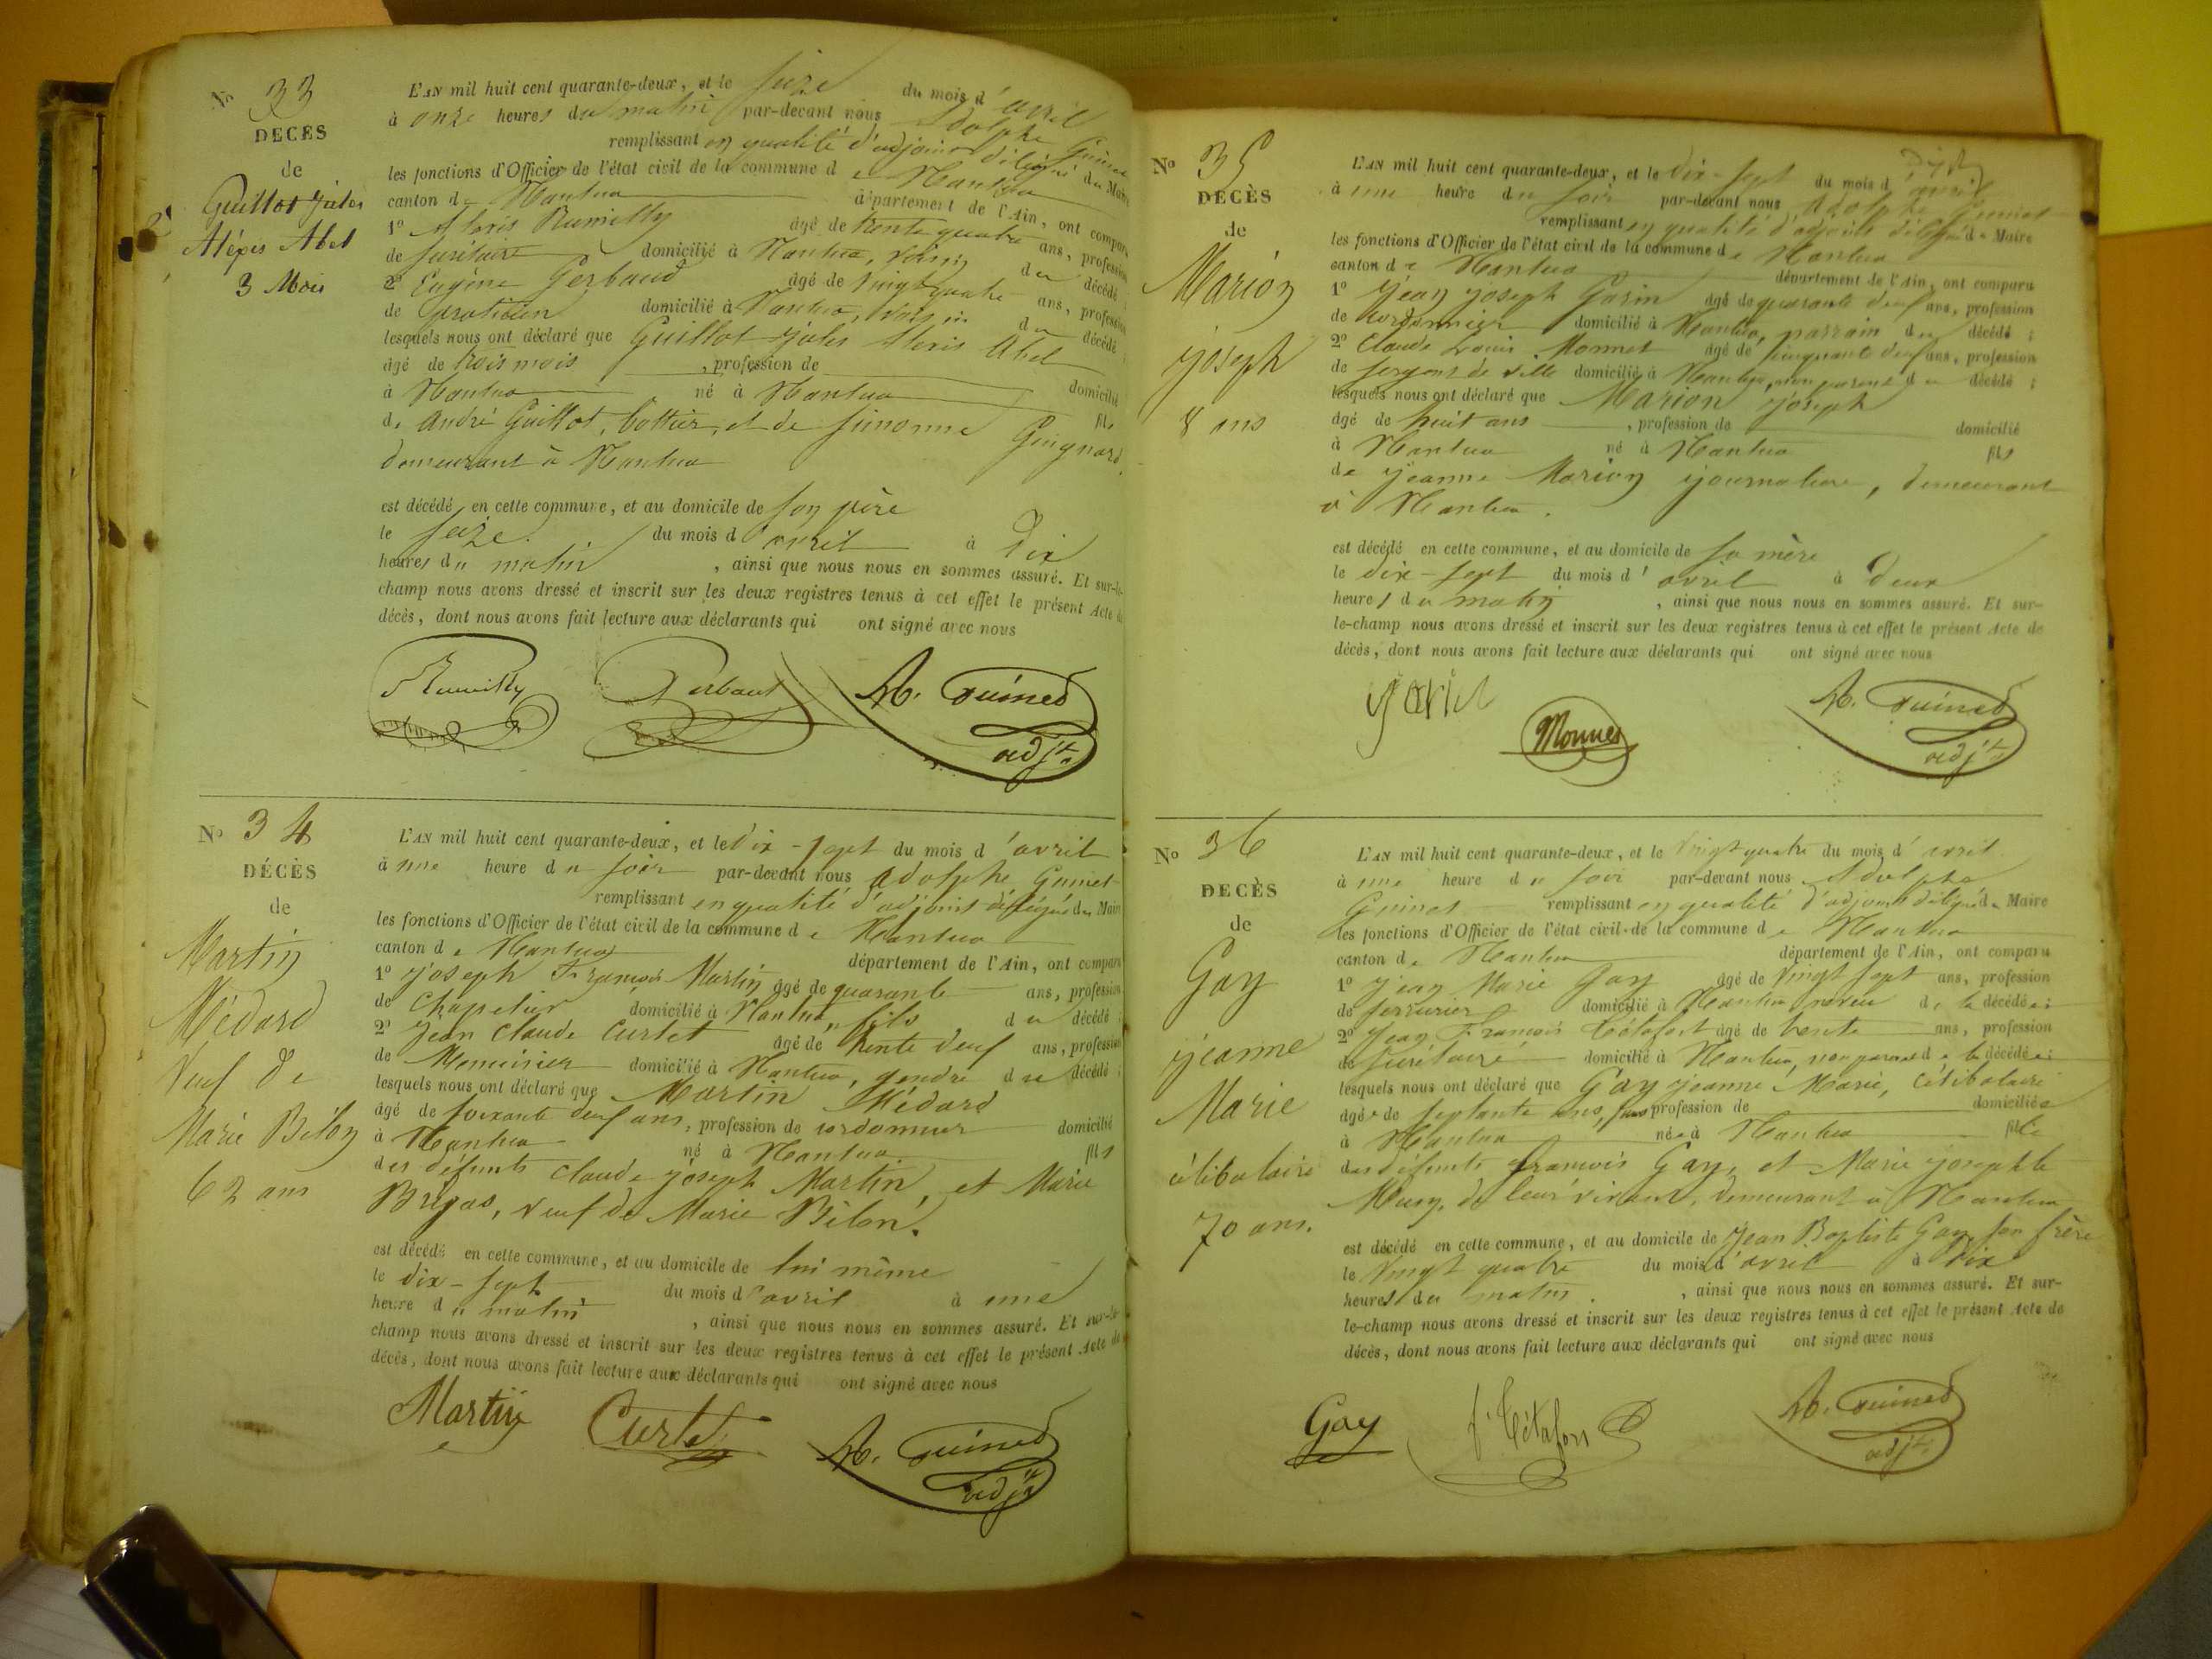 No 33
DECES
de
Guillot Jules
Aléxis Abel
3 Mois
L'AN mil huit cent quarante-deux, et le seize du mois d'avril
à onze heures du matin par-devant nous Adolphe Guinet
remplissant en qualité d'adjoint délégué du Maire
les fonctions d'Officier de l'état civil de la commune de Nantua
canton de Nantua département de l'Ain, ont comparu
1º Alexis Rumilly âgé de trente quatre ans, profession
de domicilié à Nantua, voisin du décédé ;
2º Eugène Gerbaud âgé de vingt quatre ans, profession
de praticien domicilié à Nantua, voisin du décédé ;
lesquels nous ont déclaré que Guillot Jules Alexis Abel
âgé de trois mois , profession de
domicilié
à Nantua né à Nantua fils
de André Guillot, bottier, et de Simonne Guignard,
demeurant à Nantua
est décédé en cette commune, et au domicile de son père
le seize du mois d'avril à dix
heures du matin , ainsi que nous nous en sommes assuré. Et sur-le-
champ nous avons dressé et inscrit sur les deux registres tenus à cet effet le présent Acte de
décès, dont nous avons fait lecture aux déclarants qui ont signé avec nous
Rumilly Gerbaud A. Guinet
adjt.
No 34
DÉCÈS
de
Martin
Médard
Veuf de
Marie Bilon
62 ans
L'AN mil huit cent quarante-deux, et le dix-sept du mois d'avril
à une heure du soir par-devant nous Adolphe Guinet
remplissant en qualité d'adjoint délégué du Maire
les fonctions d'Officier de l'état civil de la commune de Nantua
canton de Nantua département de l'Ain, ont comparu
1º Joseph François Martin âgé de quarante ans, profession
de Chapelier domicilié à Nantua, fils du décédé ;
2º Jean Claude Curtet âgé de trente deux ans, profession
de Menuisier domicilié à Nantua, gendre du décédé ;
lesquels nous ont déclaré que Martin Médard
âgé de soixante deux ans, profession de cordonnier domicilié
à Nantua né à Nantua. fils
des défunts Claude Joseph Martin, et Marie
veuf de Marie Bilon.
est décédé en cette commune, et au domicile de lui même
le dix-sept du mois d'avril à une
heure du matin , ainsi que nous nous en sommes assuré. Et sur-le-
champ nous avons dressé et inscrit sur les deux registres tenus à cet effet le présent Acte de
décès, dont nous avons fait lecture aux déclarants qui ont signé avec nous
Martin Curtet A. Guinet
adjt
No 35
DÉCÈS
de
Marion
Joseph
8 ans
L'AN mil huit cent quarante-deux, et le dix-sept du mois d'avril
à une heure du soir par-devant nous Adolphe Guinet
remplissant en qualité d'adjoint délégué du Maire
les fonctions d'Officier de l'état civil de la commune de Nantua
canton de Nantua département de l'Ain, ont comparu
1º Jean Joseph Garin âgé de quarante ans, profession
de cordonnier domicilié à Nantua, parrain du décédé ;
2º Claude Louis Monnet âgé de cinquante ans, profession
de sergent de ville domicilié à Nantua, non parent du décédé ;
lesquels nous ont déclaré que Marion Joseph
âgé de huit ans , profession de domicilié
à Nantua né à Nantua fils
de Jeanne Marion journalière, demeurant
à Nantua.
est décédé en cette commune, et au domicile de sa mère
le dix-sept du mois d'avril à deux
heures du matin , ainsi que nous nous en sommes assuré. Et sur-
le-champ nous avons dressé et inscrit sur les deux registres tenus à cet effet le présent Acte de
décès, dont nous avons fait lecture aux déclarants qui ont signé avec nous
Monnet A. Guinet
adjt
No 36
DECÈS
de
Gay
Jeanne
Marie
célibataire
70 ans.
L'AN mil huit cent quarante-deux, et le vingt quatre du mois d'avril
à une heure du soir par-devant nous Adolphe
Guinet remplissant en qualité d'adjoint délégué du Maire
les fonctions d'Officier de l'état civil de la commune de Nantua
canton de Nantua département de l'Ain, ont comparu
1º Jean Marie Gay âgé de vingt sept ans, profession
de serrurier domicilié à Nantua neveu de la décédée ;
2º Jean François Tétafort âgé de trente ans, profession
de domicilié à Nantua, non parent de la décédée ;
lesquels nous ont déclaré que Gay Jeanne Marie, célibataire
âgée de septante ans, sans profession de domiciliée
à Nantua née à Nantua fille
des défunts François Gay, et Marie Josephte
de leur vivant, demeurant à Nantua
est décédé en cette commune, et au domicile de Jean Baptiste Gay, son frère
le vingt quatre du mois d'avril à dix
heures du matin. , ainsi que nous nous en sommes assuré. Et sur-
le-champ nous avons dressé et inscrit sur les deux registres tenus à cet effet le présent Acte de
décès, dont nous avons fait lecture aux déclarants qui ont signé avec nous
Gay A. Guinet
adjt.